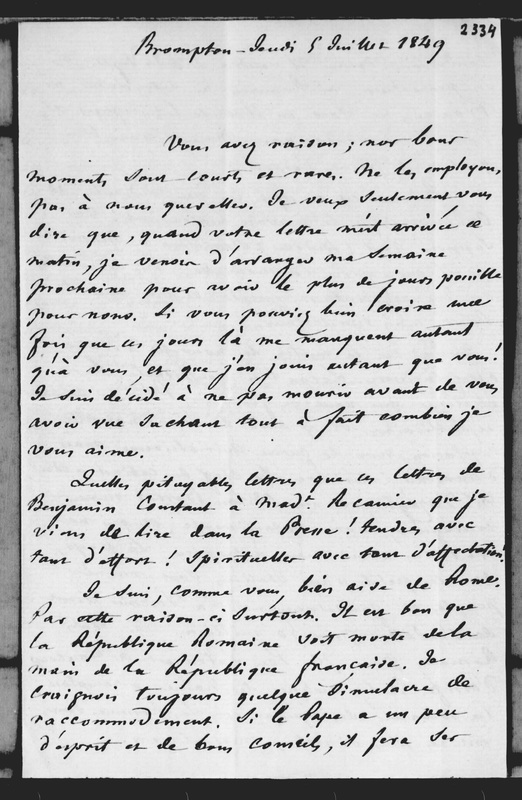 2334
Brompton - Jeudi 5 Juillet 1849
Vous avez raison ; nos bons
moments sont courts et rares. Ne les employons
pas à nous quereller. Je veux seulement vous
dire que, quand votre lettre m'est arrivée ce
matin, je venois d'arranger ma semaine
prochaine pour avoir le plus de jours possible
pour nous. Si vous pouviez bien croire une
fois que ces jours là me manquent autant
qu'à vous, et que j'en jouis autant que vous !
Je suis décidé à ne pas mourir avant de vous
avoir vue sachant tout à fait combien je
vous aime.
Quelles pitoyables lettres que ces lettres de
Benjamin Constant à Made Recamier que je
viens de lire dans la Presse ! tendres avec
tant d'effort ! Spirituelles avec tant d'affectation !
Je suis, comme vous, bien aise de Rome.
Par cette raison-ci surtout. Il est bon que
la République Romaine soit morte de la
main de la République française. Je
craignois toujours quelque simulacre de
raccommodement. Si le Pape a un peu
d'esprit et de bons conseils, il fera ser